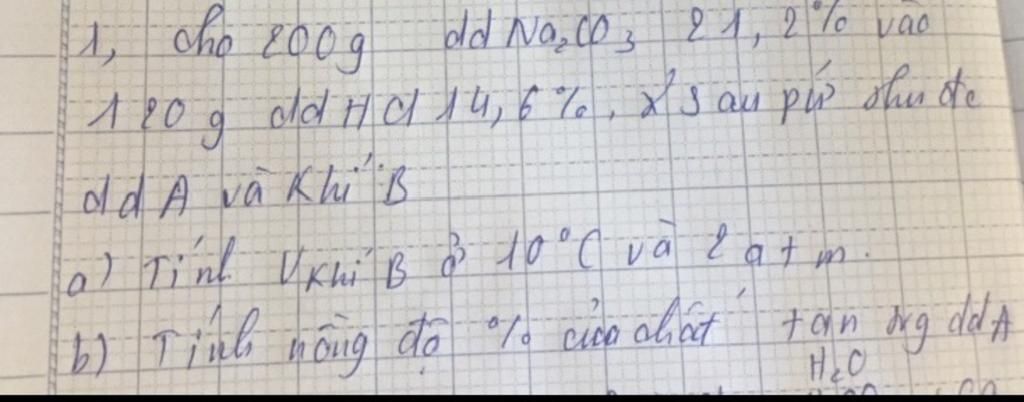 1, cho 200g dd Na₂CO₃ 21,2% vào
120g dd HCl 14,6%, sau pứ thu đc
dd A và Khí B
a) Tính VKhí B ở 10°C và 2 atm.
b) Tính nồng độ % của chất tan trg dd A
H₂O